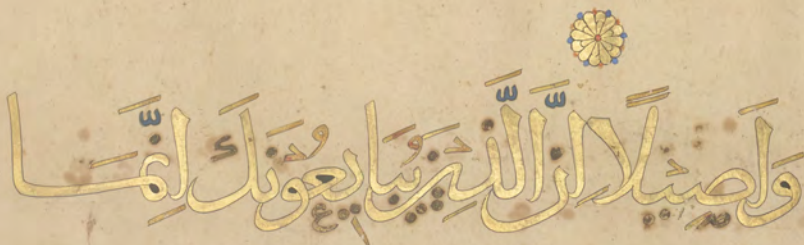 وَأَصِيلًا إِنَّ الَّذِينَ يُبَايِعُونَكَ إِنَّمَا